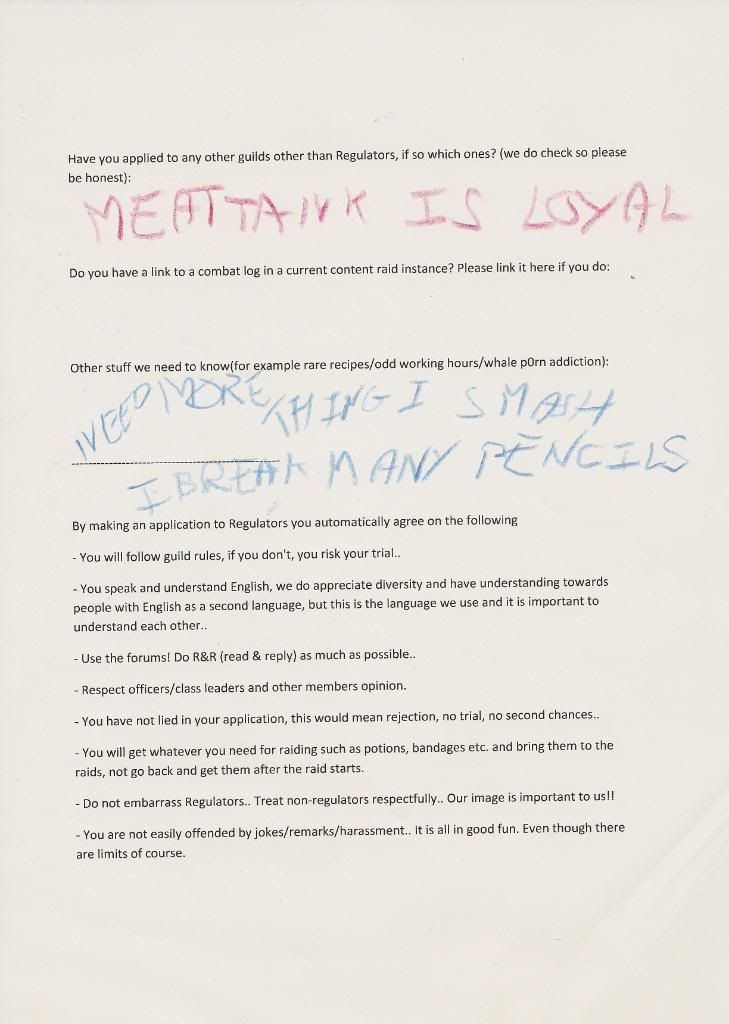 Have you applied to any other guilds other than Regulators, if so which ones? (we do check so please
be honest):
MEATTANK IS LOYAL
Do you have a link to a combat log in a current content raid instance? Please link it here if you do:
Other stuff we need to know(for example rare recipes/odd working hours/whale p0rn addiction):
NEED MORE THING I SMASH
I BREAK MANY PENCILS
By making an application to Regulators you automatically agree on the following
- You will follow guild rules, if you don't, you risk your trial..
- You speak and understand English, we do appreciate diversity and have understanding towards
people with English as a second language, but this is the language we use and it is important to
understand each other..
- Use the forums! Do R&R (read & reply) as much as possible..
- Respect officers/class leaders and other members opinion.
- You have not lied in your application, this would mean rejection, no trial, no second chances..
- You will get whatever you need for raiding such as potions, bandages etc. and bring them to the
raids, not go back and get them after the raid starts.
- Do not embarrass Regulators.. Treat non-regulators respectfully.. Our image is important to us!!
- You are not easily offended by jokes/remarks/harassment.. It is all in good fun. Even though there
are limits of course.